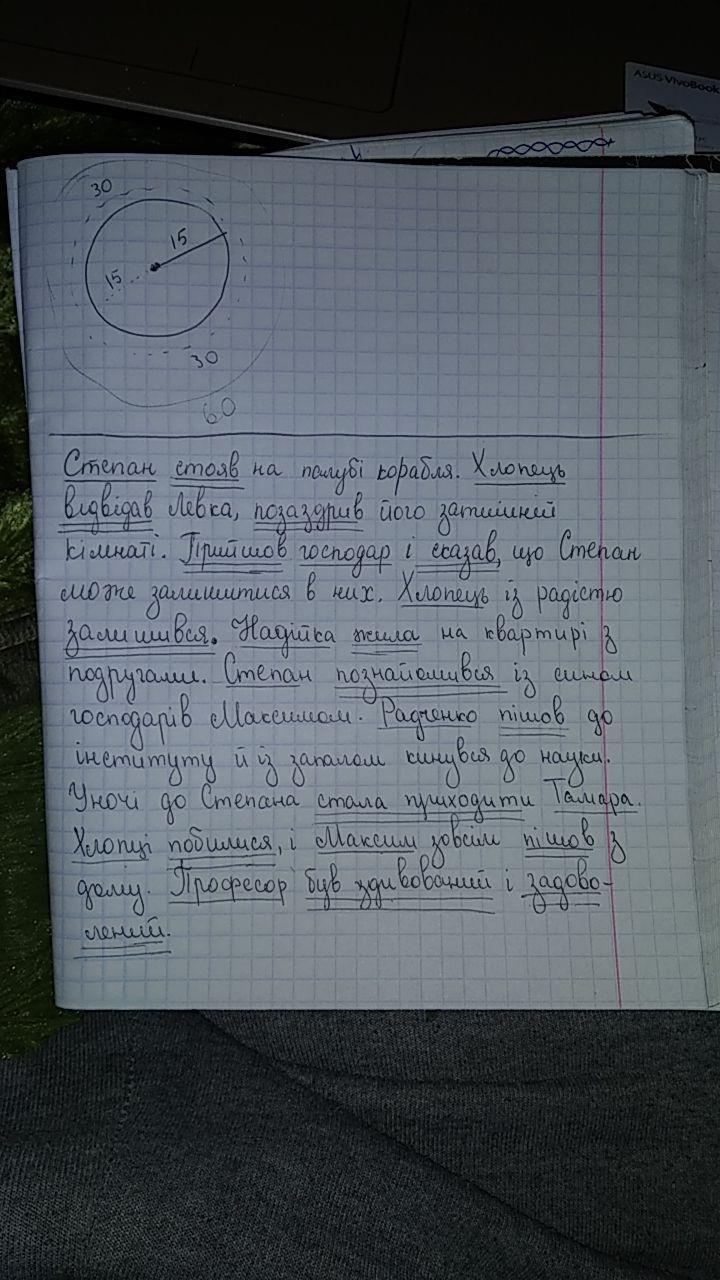 ASUS VivoBook
30
15
15
30
60
Степан стояв на палубі корабля. Хлопець
відвідав Левка, позаздрив його затишній
кімнаті. Прийшов господар і сказав, що Степан
може залишитися в них. Хлопець із радістю
залишився. Надійка жила на квартирі з
подругами. Степан познайомився із сином
господарів Максимом. Радченко пішов до
інституту й із запалом кинувся до науки.
Уночі до Степана стала приходити Тамара.
Хлопці побилися, і Максим зовсім пішов з
дому. Професор був здивований і задово-
лений.